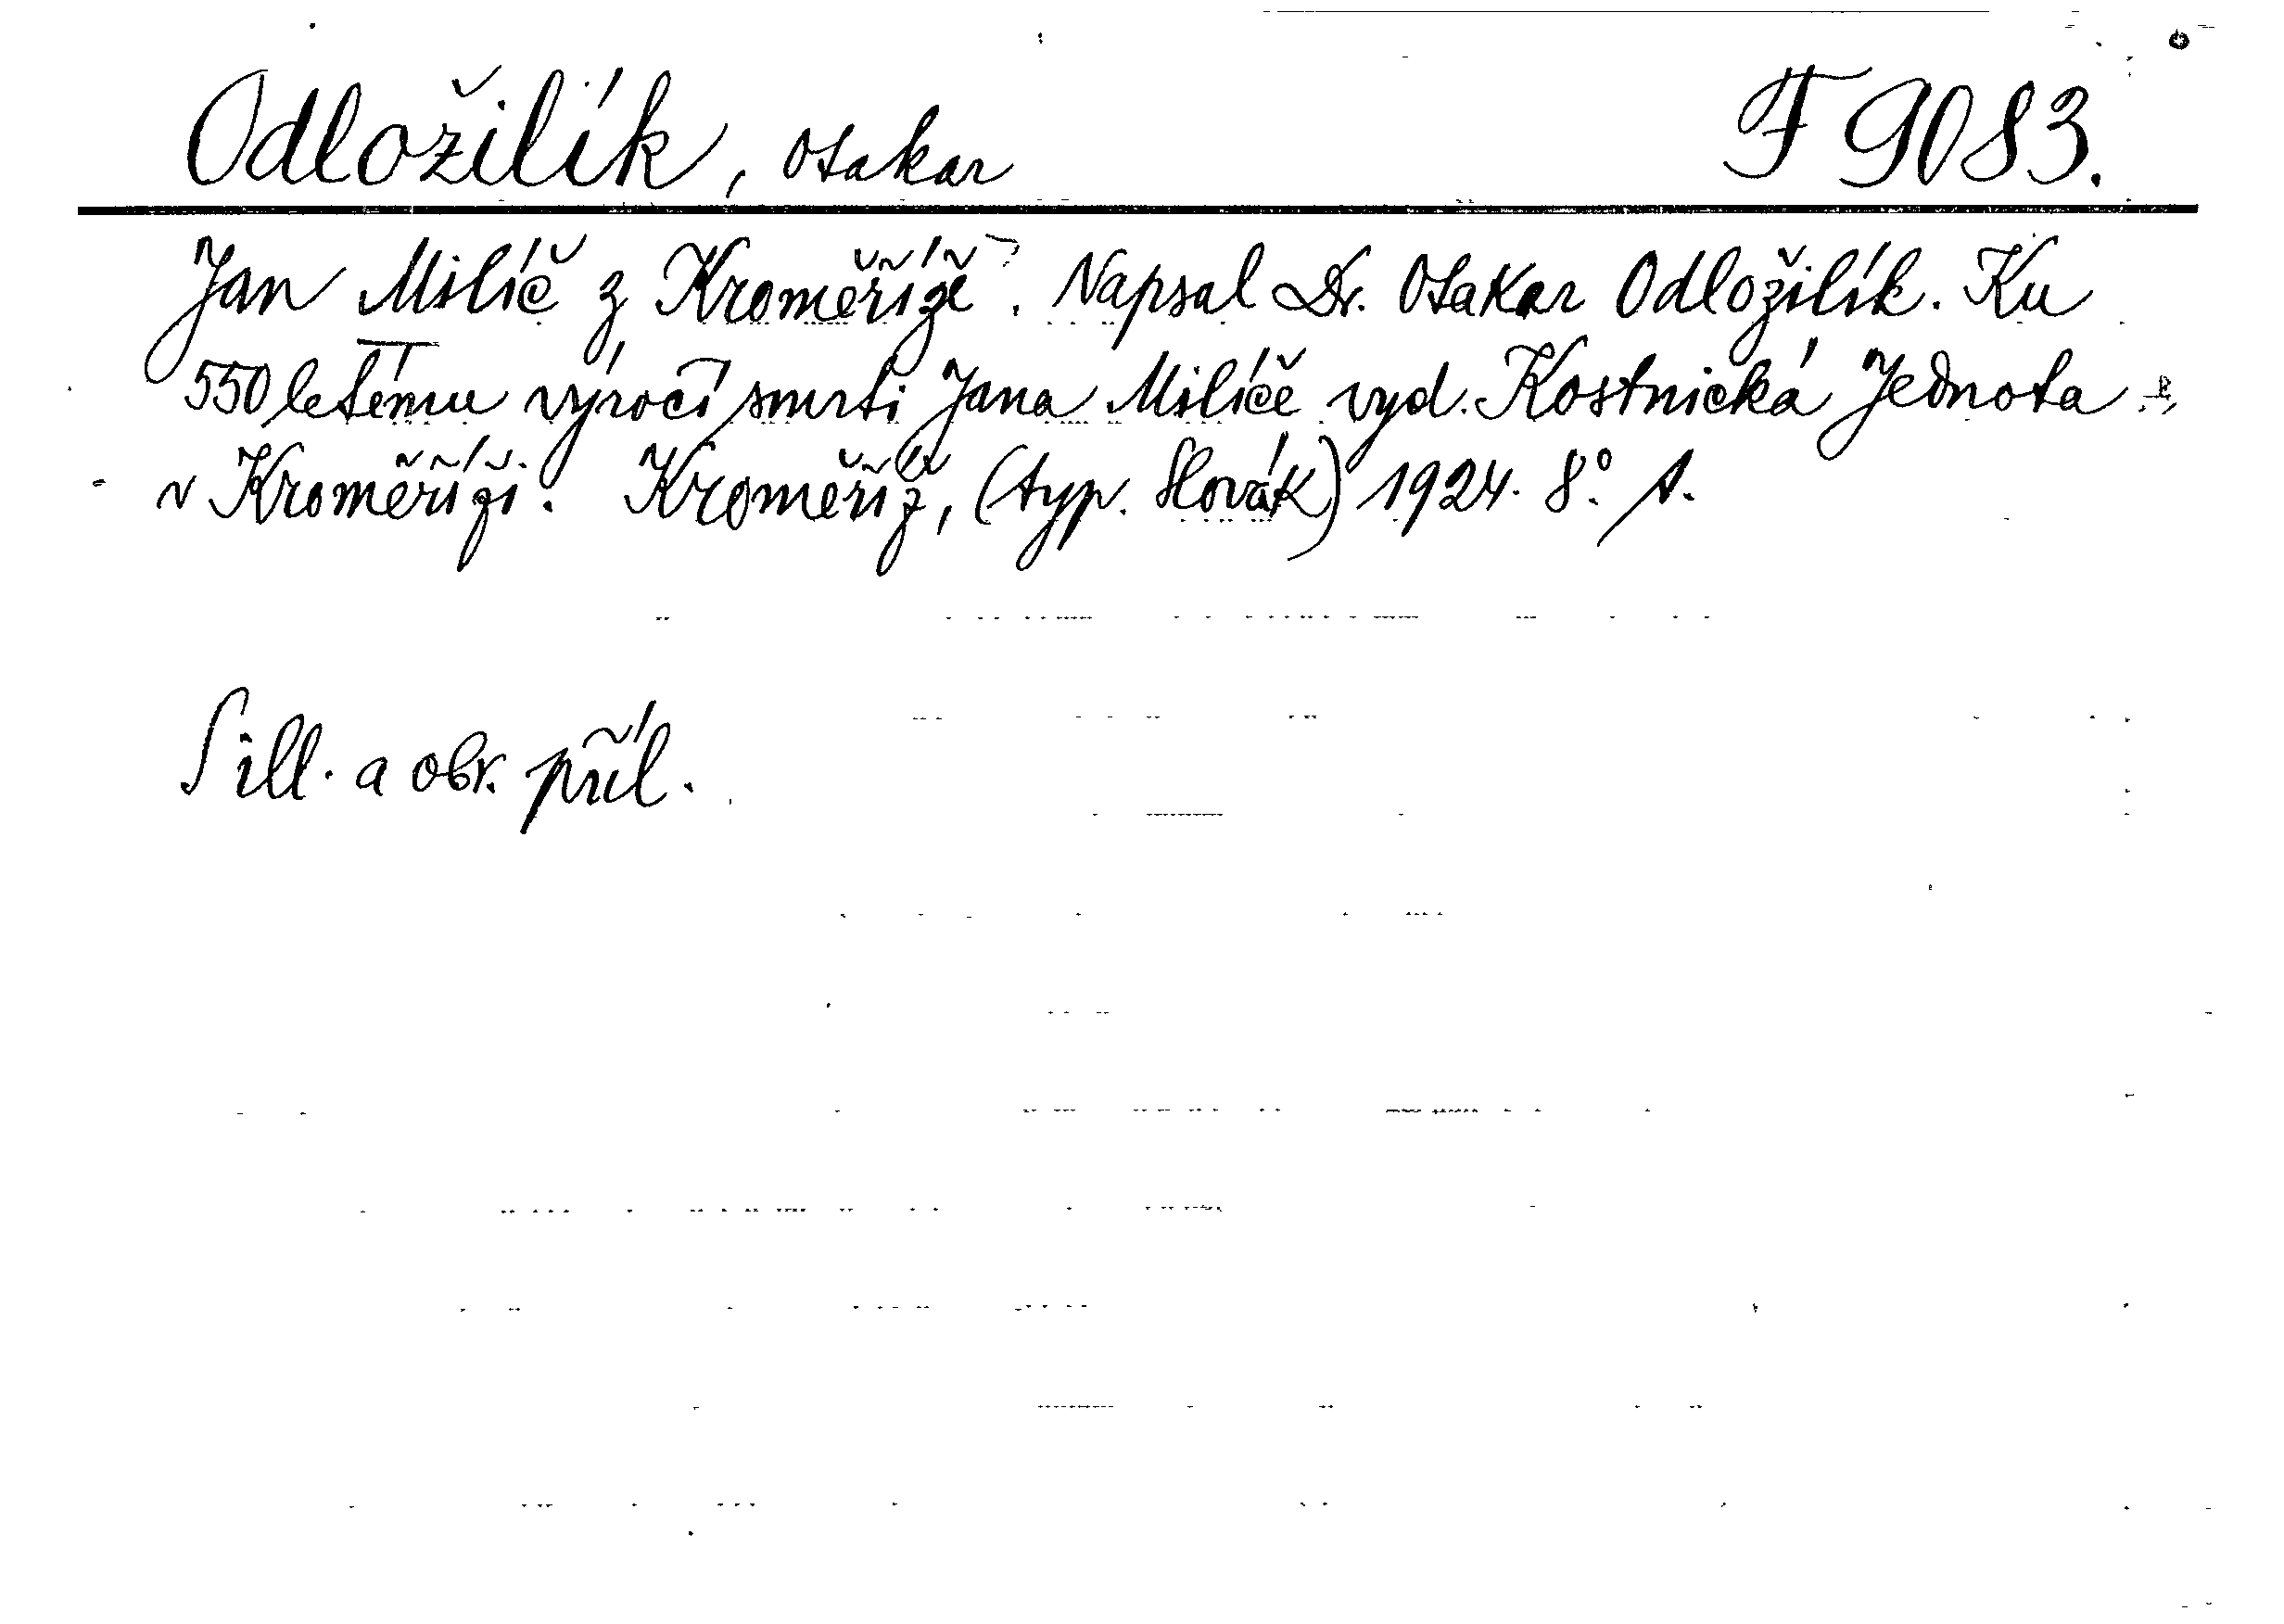 Odložilík, Otakar F 9083.
Jan Milíč z Kroměříže. Napsal Dr. Otakar Odložilík. Ku
550letému výročí smrti Jana Milíče vyd. Kostnická Jednota
v Kroměříži. Kroměříž, (typ. Slovák) 1924. 8°. s.
S ill. a obr. příl.